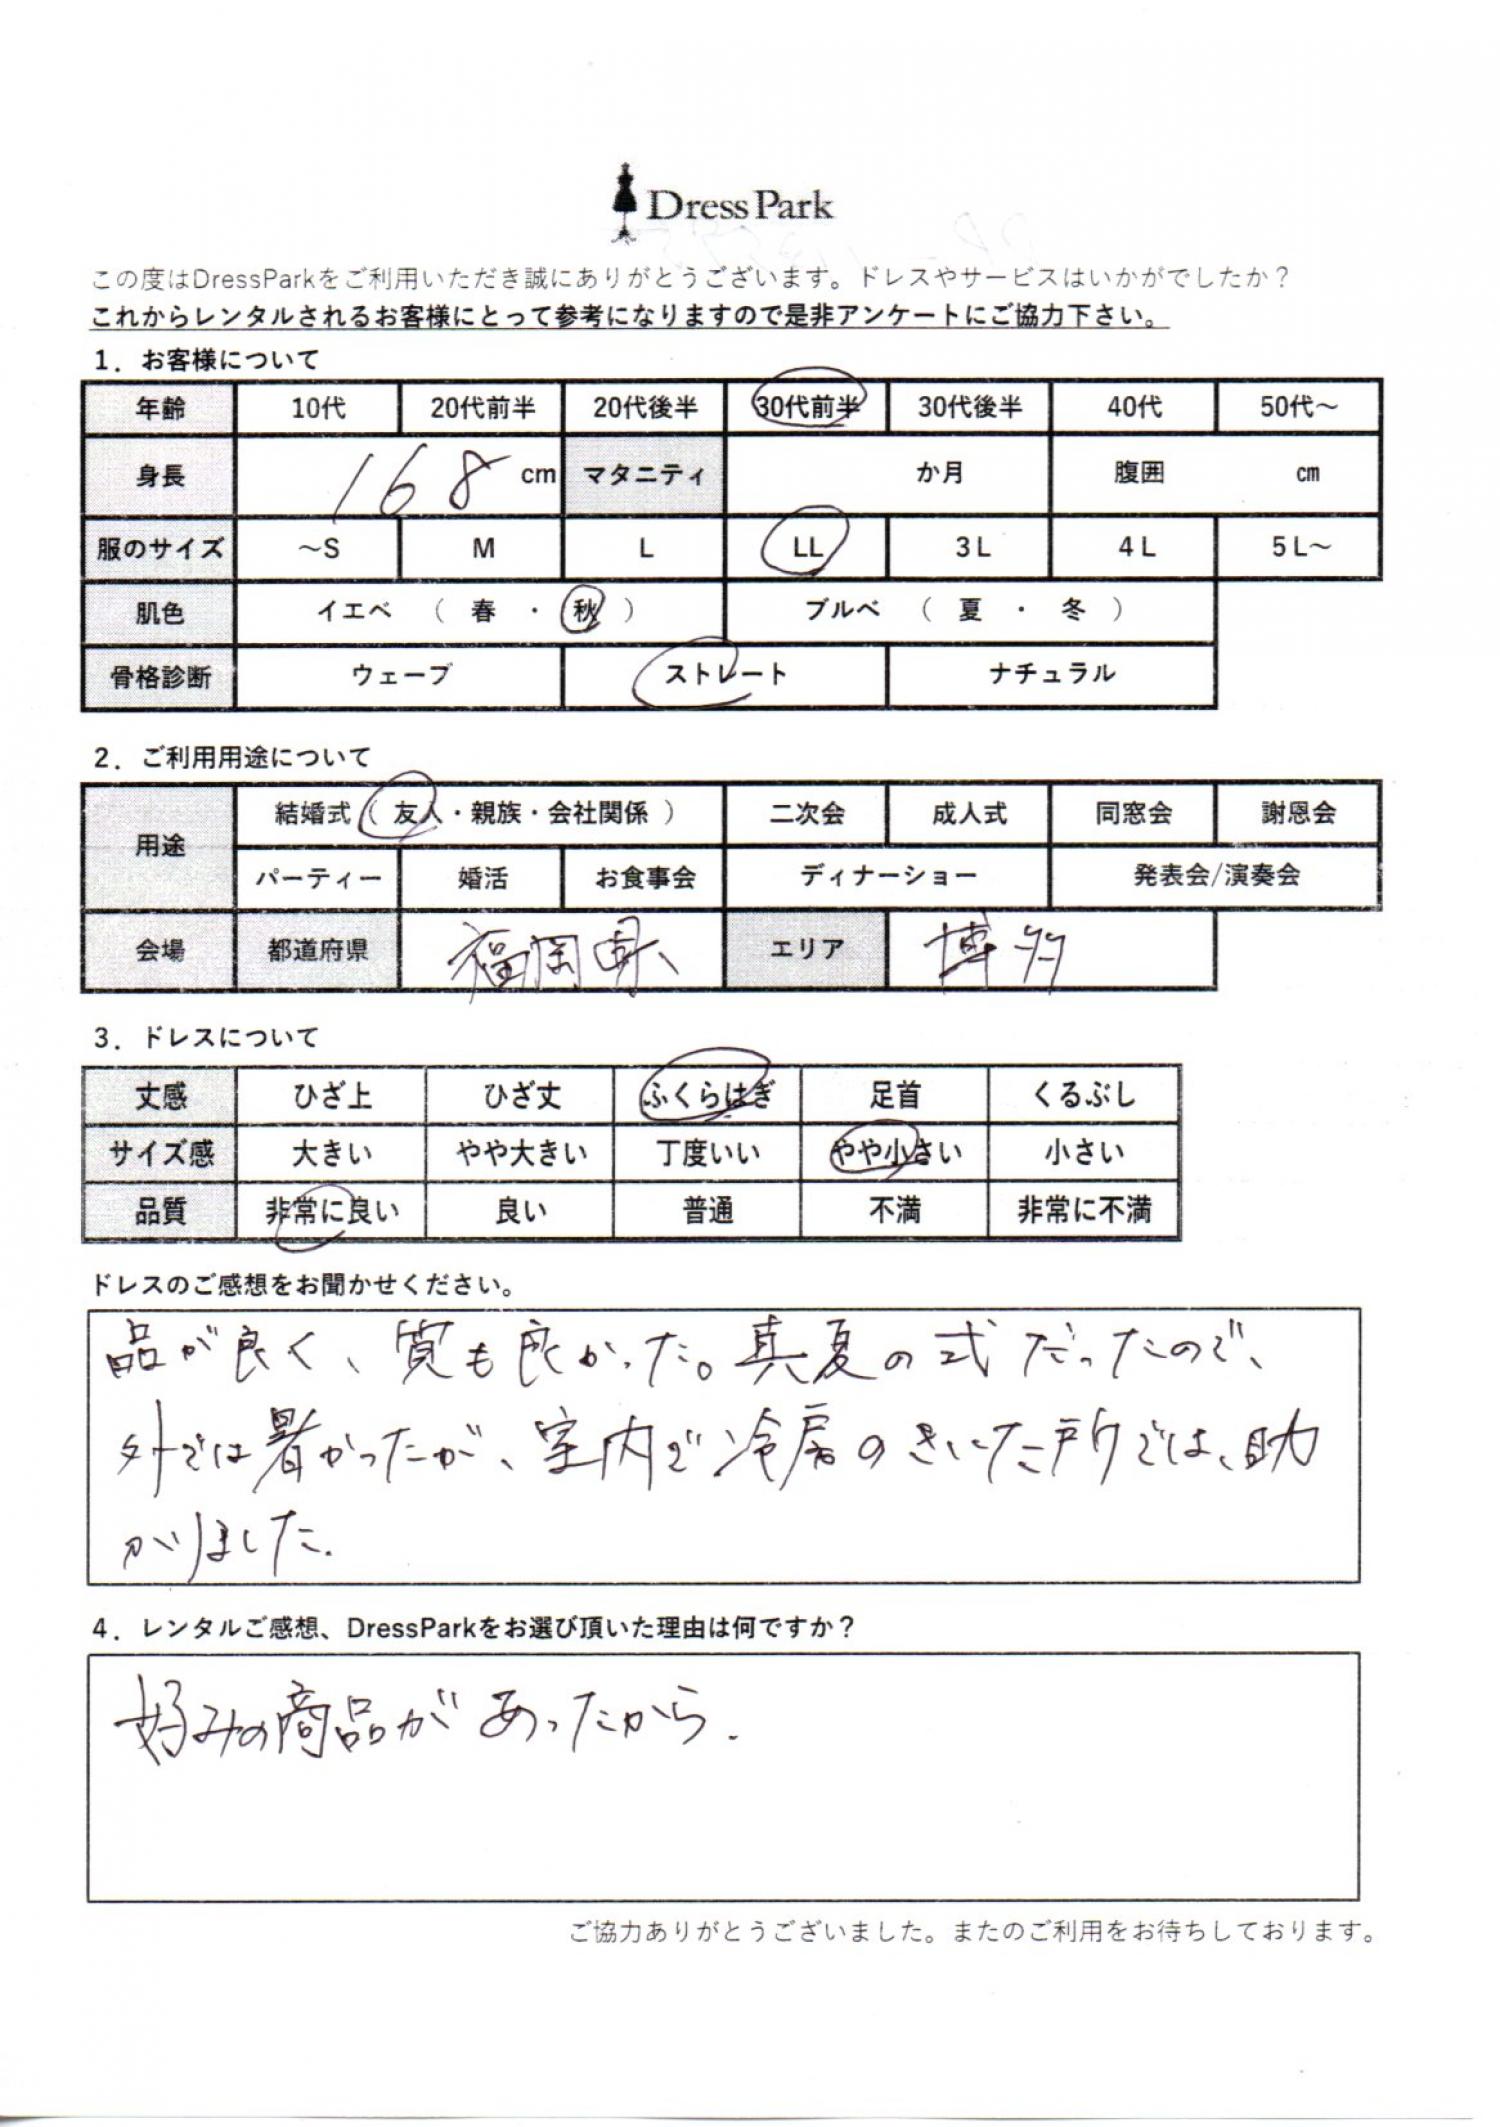 Dress Park
この度はDressParkをご利用いただき誠にありがとうございます。ドレスやサービスはいかがでしたか？
これからレンタルされるお客様にとって参考になりますので是非アンケートにご協力下さい。
1．お客様について
年齢 10代 20代前半 20代後半 30代前半 30代後半 40代 50代～
身長 168 cm マタニティ か月 腹囲 cm
服のサイズ ～S M L LL 3L 4L 5L～
肌色 イエベ （ 春 ・ 秋 ） ブルベ （ 夏 ・ 冬 ）
骨格診断 ウェーブ ストレート ナチュラル
2．ご利用用途について
用途 結婚式（ 友人・親族・会社関係 ） 二次会 成人式 同窓会 謝恩会
パーティー 婚活 お食事会 ディナーショー 発表会/演奏会
会場 都道府県 福岡県 エリア 博多
3．ドレスについて
丈感 ひざ上 ひざ丈 ふくらはぎ 足首 くるぶし
サイズ感 大きい やや大きい 丁度いい やや小さい 小さい
品質 非常に良い 良い 普通 不満 非常に不満
ドレスのご感想をお聞かせください。
品が良く、質も良かった。真夏の式だったので、
外では暑かったが、室内で冷房のきいた所では、助
かりました.
4．レンタルご感想、DressParkをお選び頂いた理由は何ですか？
好みの商品があったから.
ご協力ありがとうございました。またのご利用をお待ちしております。